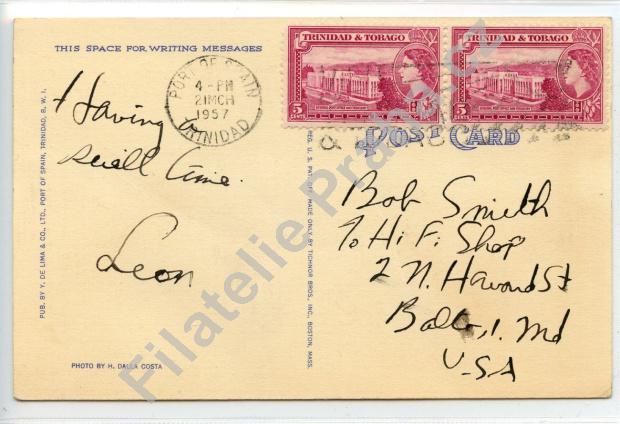 THIS SPACE FOR WRITING MESSAGES
PORT OF SPAIN
4 - PM
21 MCH
1957
TRINIDAD
TRINIDAD & TOBAGO
5
CENTS
TRINIDAD & TOBAGO
5
CENTS
POST CARD
Having
swell time.
Leon
Bob Smith
% Hi Fi Shop
2 N. Howard St
Balto, Md
U.S.A
PUB. BY Y. DE LIMA & CO., LTD., PORT OF SPAIN, TRINIDAD, B. W. I.
REG. U. S. PAT. OFF. MADE ONLY BY TICHNOR BROS., INC., BOSTON, MASS.
PHOTO BY H. DALLA COSTA
Filatelie Praha.cz